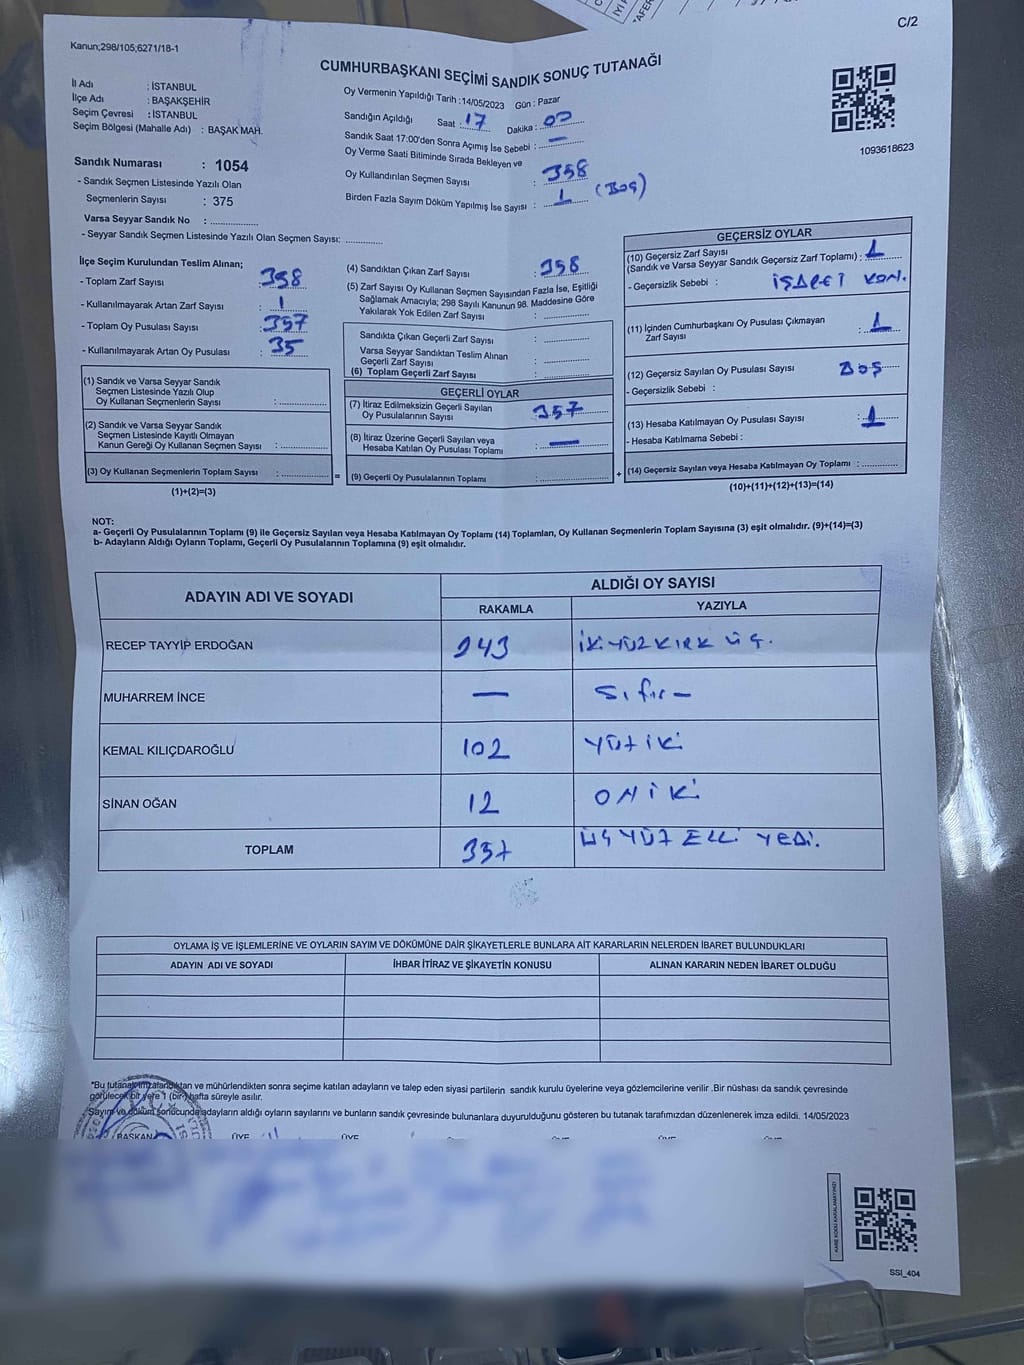 C/2
Kanun;298/105;6271/18-1
CUMHURBAŞKANI SEÇİMİ SANDIK SONUÇ TUTANAĞI
İl Adı : İSTANBUL
İlçe Adı : BAŞAKŞEHİR
Seçim Çevresi : İSTANBUL
Seçim Bölgesi (Mahalle Adı) : BAŞAK MAH.
Oy Vermenin Yapıldığı Tarih :14/05/2023 Gün : Pazar
Sandığın Açıldığı Saat : 17 Dakika : 00
Sandık Saat 17:00'den Sonra Açımış İse Sebebi : —
Oy Verme Saati Bitiminde Sırada Bekleyen ve
Oy Kullandırılan Seçmen Sayısı : 358
Birden Fazla Sayım Döküm Yapılmış İse Sayısı : 1 (Boş)
1093618623
Sandık Numarası : 1054
- Sandık Seçmen Listesinde Yazılı Olan
Seçmenlerin Sayısı : 375
Varsa Seyyar Sandık No : ..............
- Seyyar Sandık Seçmen Listesinde Yazılı Olan Seçmen Sayısı: ............
İlçe Seçim Kurulundan Teslim Alınan;
- Toplam Zarf Sayısı : 398
- Kullanılmayarak Artan Zarf Sayısı : 1
- Toplam Oy Pusulası Sayısı : 397
- Kullanılmayarak Artan Oy Pusulası : 35
(1) Sandık ve Varsa Seyyar Sandık
Seçmen Listesinde Yazılı Olup
Oy Kullanan Seçmenlerin Sayısı : ............
(2) Sandık ve Varsa Seyyar Sandık
Seçmen Listesinde Kayıtlı Olmayan
Kanun Gereği Oy Kullanan Seçmen Sayısı : ............
(3) Oy Kullanan Seçmenlerin Toplam Sayısı : ............ =
(1)+(2)=(3)
(4) Sandıktan Çıkan Zarf Sayısı : 358
(5) Zarf Sayısı Oy Kullanan Seçmen Sayısından Fazla İse, Eşitliği
Sağlamak Amacıyla; 298 Sayılı Kanunun 98. Maddesine Göre
Yakılarak Yok Edilen Zarf Sayısı : ............
Sandıkta Çıkan Geçerli Zarf Sayısı : ............
Varsa Seyyar Sandıktan Teslim Alınan
Geçerli Zarf Sayısı : ............
(6) Toplam Geçerli Zarf Sayısı : ............
GEÇERLİ OYLAR
(7) İtiraz Edilmeksizin Geçerli Sayılan
Oy Pusulalarının Sayısı : 357
(8) İtiraz Üzerine Geçerli Sayılan veya
Hesaba Katılan Oy Pusulası Toplamı : —
(9) Geçerli Oy Pusulalarının Toplamı : ............ +
GEÇERSİZ OYLAR
(10) Geçersiz Zarf Sayısı
(Sandık ve Varsa Seyyar Sandık Geçersiz Zarf Toplamı) : 1
- Geçersizlik Sebebi : İŞARET KON.
(11) İçinden Cumhurbaşkanı Oy Pusulası Çıkmayan
Zarf Sayısı : 1
(12) Geçersiz Sayılan Oy Pusulası Sayısı BOŞ
- Geçersizlik Sebebi :
(13) Hesaba Katılmayan Oy Pusulası Sayısı : 1
- Hesaba Katılmama Sebebi :
(14) Geçersiz Sayılan veya Hesaba Katılmayan Oy Toplamı : ............
(10)+(11)+(12)+(13)=(14)
NOT:
a- Geçerli Oy Pusulalarının Toplamı (9) ile Geçersiz Sayılan veya Hesaba Katılmayan Oy Toplamı (14) Toplamları, Oy Kullanan Seçmenlerin Toplam Sayısına (3) eşit olmalıdır. (9)+(14)=(3)
b- Adayların Aldığı Oyların Toplamı, Geçerli Oy Pusulalarının Toplamına (9) eşit olmalıdır.
ADAYIN ADI VE SOYADI ALDIĞI OY SAYISI
RAKAMLA YAZIYLA
RECEP TAYYİP ERDOĞAN 243 İKİYÜZKIRK ÜÇ.
MUHARREM İNCE — Sıfır –
KEMAL KILIÇDAROĞLU 102 YÜZ İKİ
SİNAN OĞAN 12 ONİKİ
TOPLAM 357 ÜÇ YÜZ ELLİ YEDİ.
OYLAMA İŞ VE İŞLEMLERİNE VE OYLARIN SAYIM VE DÖKÜMÜNE DAİR ŞİKAYETLERLE BUNLARA AİT KARARLARIN NELERDEN İBARET BULUNDUKLARI
ADAYIN ADI VE SOYADI İHBAR İTİRAZ VE ŞİKAYETİN KONUSU ALINAN KARARIN NEDEN İBARET OLDUĞU
*Bu tutanak imzalandıktan ve mühürlendikten sonra seçime katılan adayların ve talep eden siyasi partilerin sandık kurulu üyelerine veya gözlemcilerine verilir .Bir nüshası da sandık çevresinde
görülecek bir yere 1 (bir) hafta süreyle asılır.
Sayım ve döküm sonucunda adayların aldığı oyların sayılarını ve bunların sandık çevresinde bulunanlara duyurulduğunu gösteren bu tutanak tarafımızdan düzenlenerek imza edildi. 14/05/2023
BAŞKAN ÜYE ÜYE
KARE KODU KARALAMAYINIZ!
SSI_404